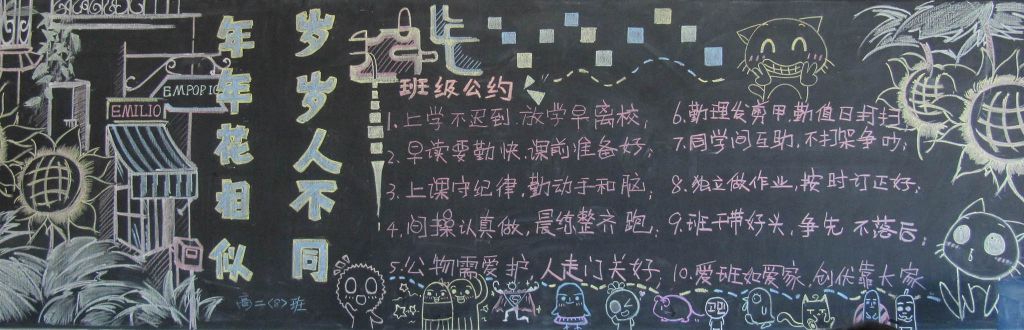 EMPORIO
EMILIO
年年花相似
岁岁人不同
高二〈8〉班
班级公约
1. 上学不迟到,放学早离校;
2. 早读要勤快,课前准备好;
3. 上课守纪律,勤动手和脑;
4. 间操认真做,晨练整齐跑;
5. 公物需爱护,人走门关好;
6. 勤理发剪甲,勤值日打扫;
7. 同学间互助,不打架争吵;
8. 独立做作业,按时订正好;
9. 班干带好头,争先不落后;
10. 爱班如爱家,创优靠大家